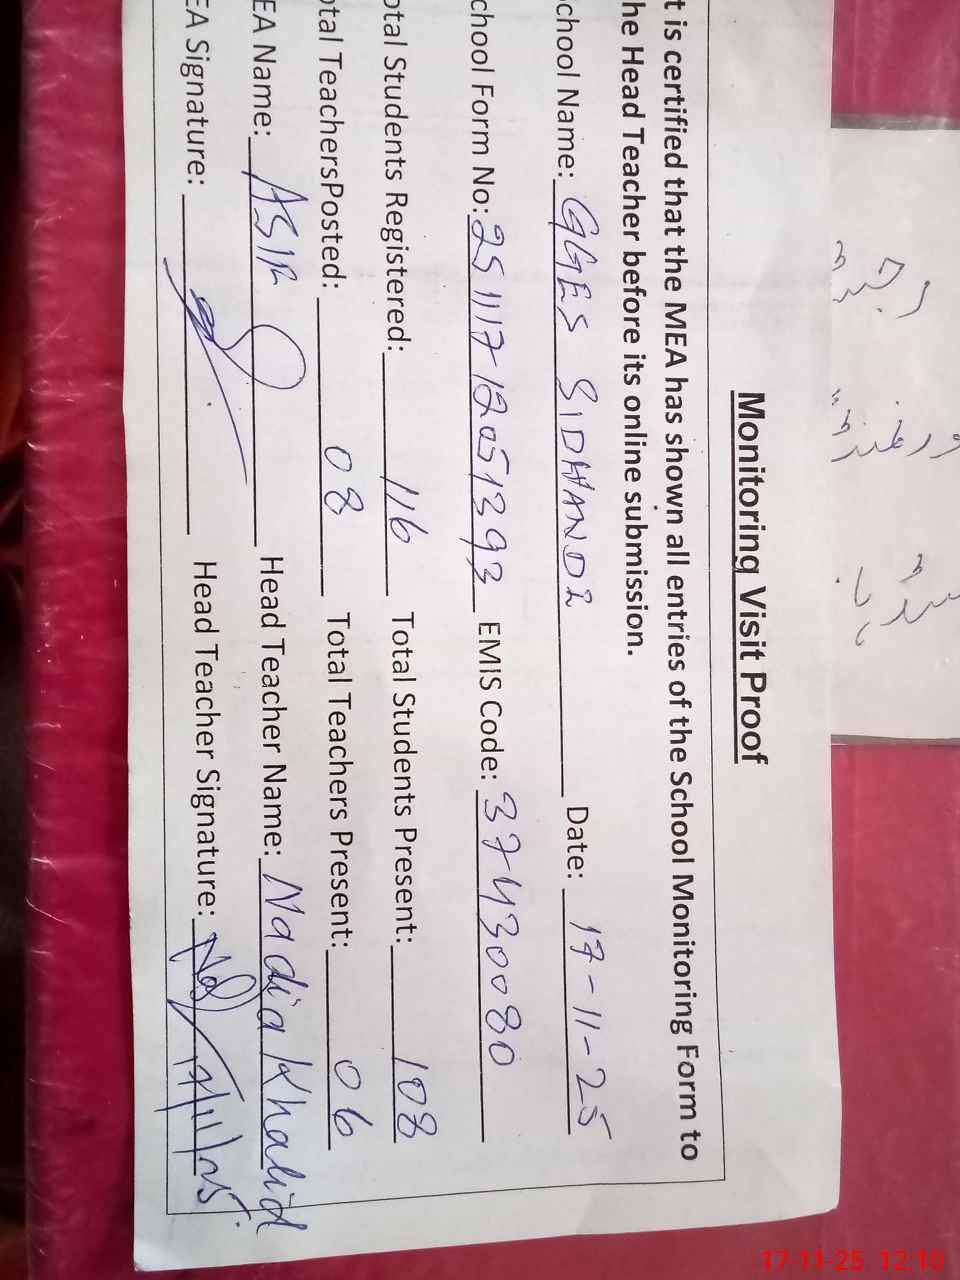 Monitoring Visit Proof
t is certified that the MEA has shown all entries of the School Monitoring Form to
he Head Teacher before its online submission.
chool Name: GGES SIDHANDI Date: 17-11-25
chool Form No: 25111712051393 EMIS Code: 37430080
otal Students Registered: 116 Total Students Present: 108
otal TeachersPosted: 08 Total Teachers Present: 06
EA Name: ASIR Head Teacher Name: Nadia Khalid
EA Signature: Head Teacher Signature: 17/11/25
17-11-25 12:10